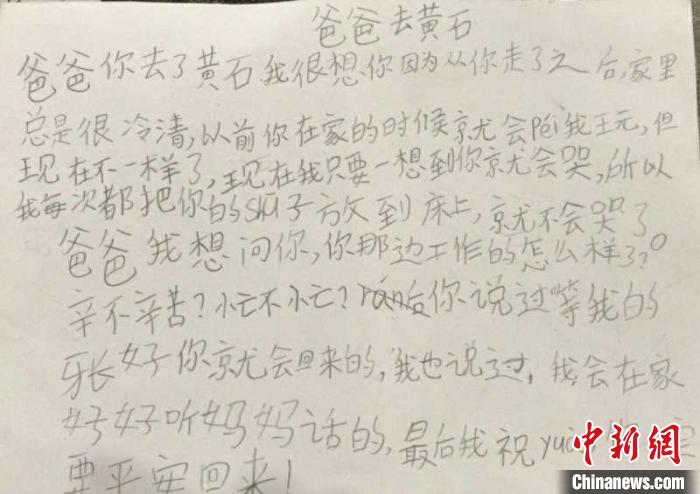 爸爸去黄石
爸爸你去了黄石我很想你因为从你走了之后,家里
总是很冷清,以前你在家的时候就会Pei我玩,但
现在不一样了,现在我只要一想到你就会哭,所以
我每次都把你的Shu子放到床上,就不会哭了
爸爸我想问你,你那边工作的怎么样了?
辛不辛苦?忙不忙?rán后你说过等我的
牙长好你就会回来的,我也说过,我会在家
好好听妈妈话的,最后我祝
要平安回来!
中新网
Chinanews.com